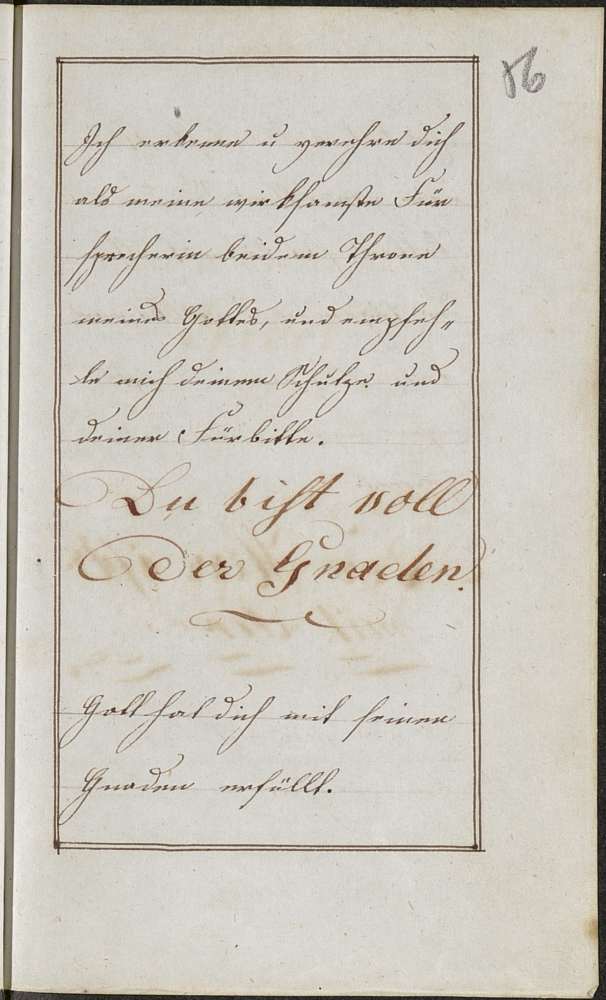 86
Ich erkenne u verehre dich
als meine wirksamste Für
sprecherin beidem Throne
meines Gottes, und empfeh„
le mich deinem Schutze und
deiner Fürbitte.
Du bist voll
Der Gnaden.
Gott hat dich mit seinen
Gnaden erfüllt.